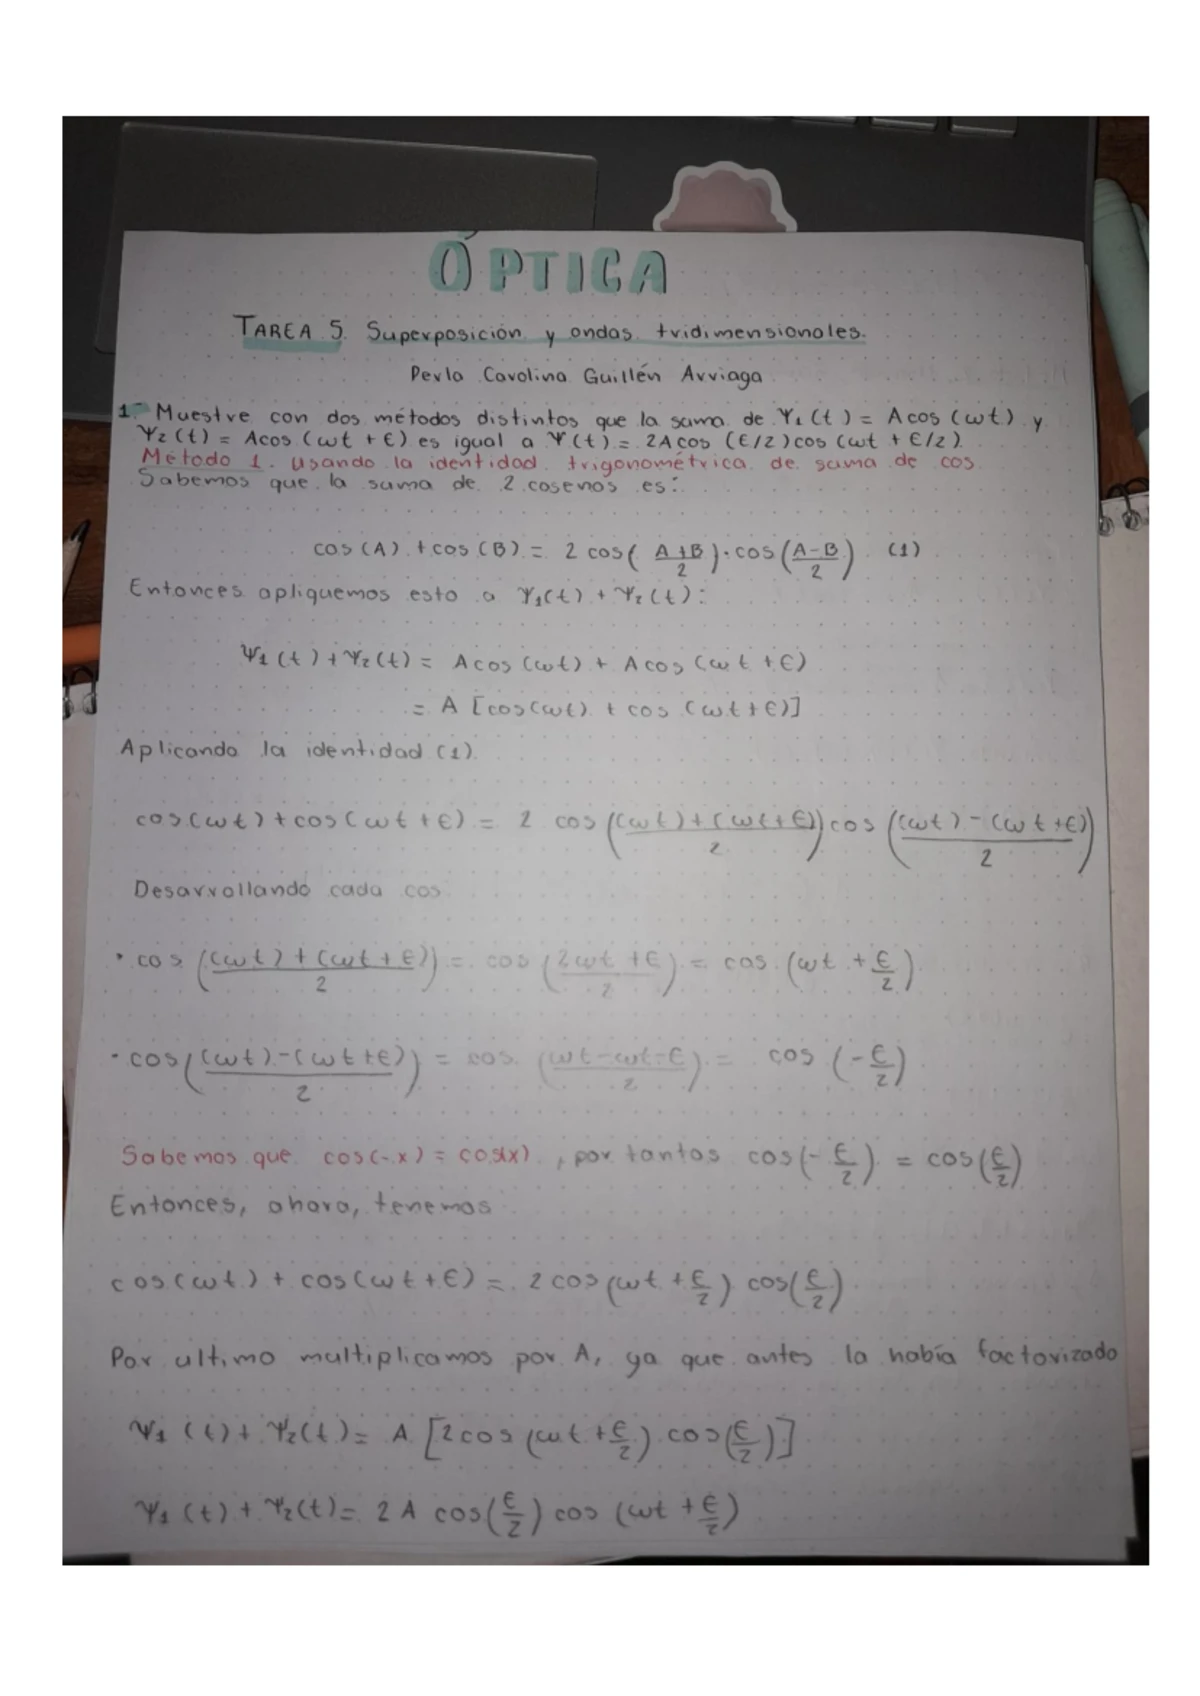 ÓPTICA
TAREA 5. Superposición y ondas tridimensionales.
Perla Carolina Guillén Arriaga
1. Muestre con dos métodos distintos que la suma de Ψ₁(t) = A cos(ωt) y
Ψ₂(t) = Acos(ωt + ϵ) es igual a Ψ(t) = 2A cos(ϵ/2)cos(ωt + ϵ/2).
Método 1. Usando la identidad trigonométrica de suma de cos.
Sabemos que la suma de 2 cosenos es:
cos(A) + cos(B) = 2 cos((A+B)/2)·cos((A-B)/2) (1)
Entonces apliquemos esto a Ψ₁(t) + Ψ₂(t):
Ψ₁(t) + Ψ₂(t) = Acos(ωt) + Acos(ωt + ϵ)
= A [cos(ωt) + cos(ωt + ϵ)]
Aplicando la identidad (1)
cos(ωt) + cos(ωt + ϵ) = 2 cos(((ωt)+(ωt+ϵ))/2) cos(((ωt)-(ωt+ϵ))/2)
Desarrollando cada cos
• cos(((ωt)+(ωt+ϵ))/2) = cos((2ωt+ϵ)/2) = cos(ωt + ϵ/2)
• cos(((ωt)-(ωt+ϵ))/2) = cos((ωt-ωt-ϵ)/2) = cos(-ϵ/2)
Sabemos que cos(-x) = cos(x), por tantos cos(-ϵ/2) = cos(ϵ/2)
Entonces, ahora, tenemos
cos(ωt) + cos(ωt + ϵ) = 2 cos(ωt + ϵ/2) cos(ϵ/2)
Por ultimo multiplicamos por A, ya que antes la había factorizado
Ψ₁(t) + Ψ₂(t) = A [2cos(ωt + ϵ/2) cos(ϵ/2)]
Ψ₁(t) + Ψ₂(t) = 2 A cos(ϵ/2) cos(ωt + ϵ/2)